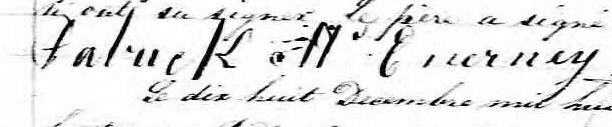 ni ont su signer. Le père a signé
Patrick McEnerney
Le dix huit Decembre mil huit